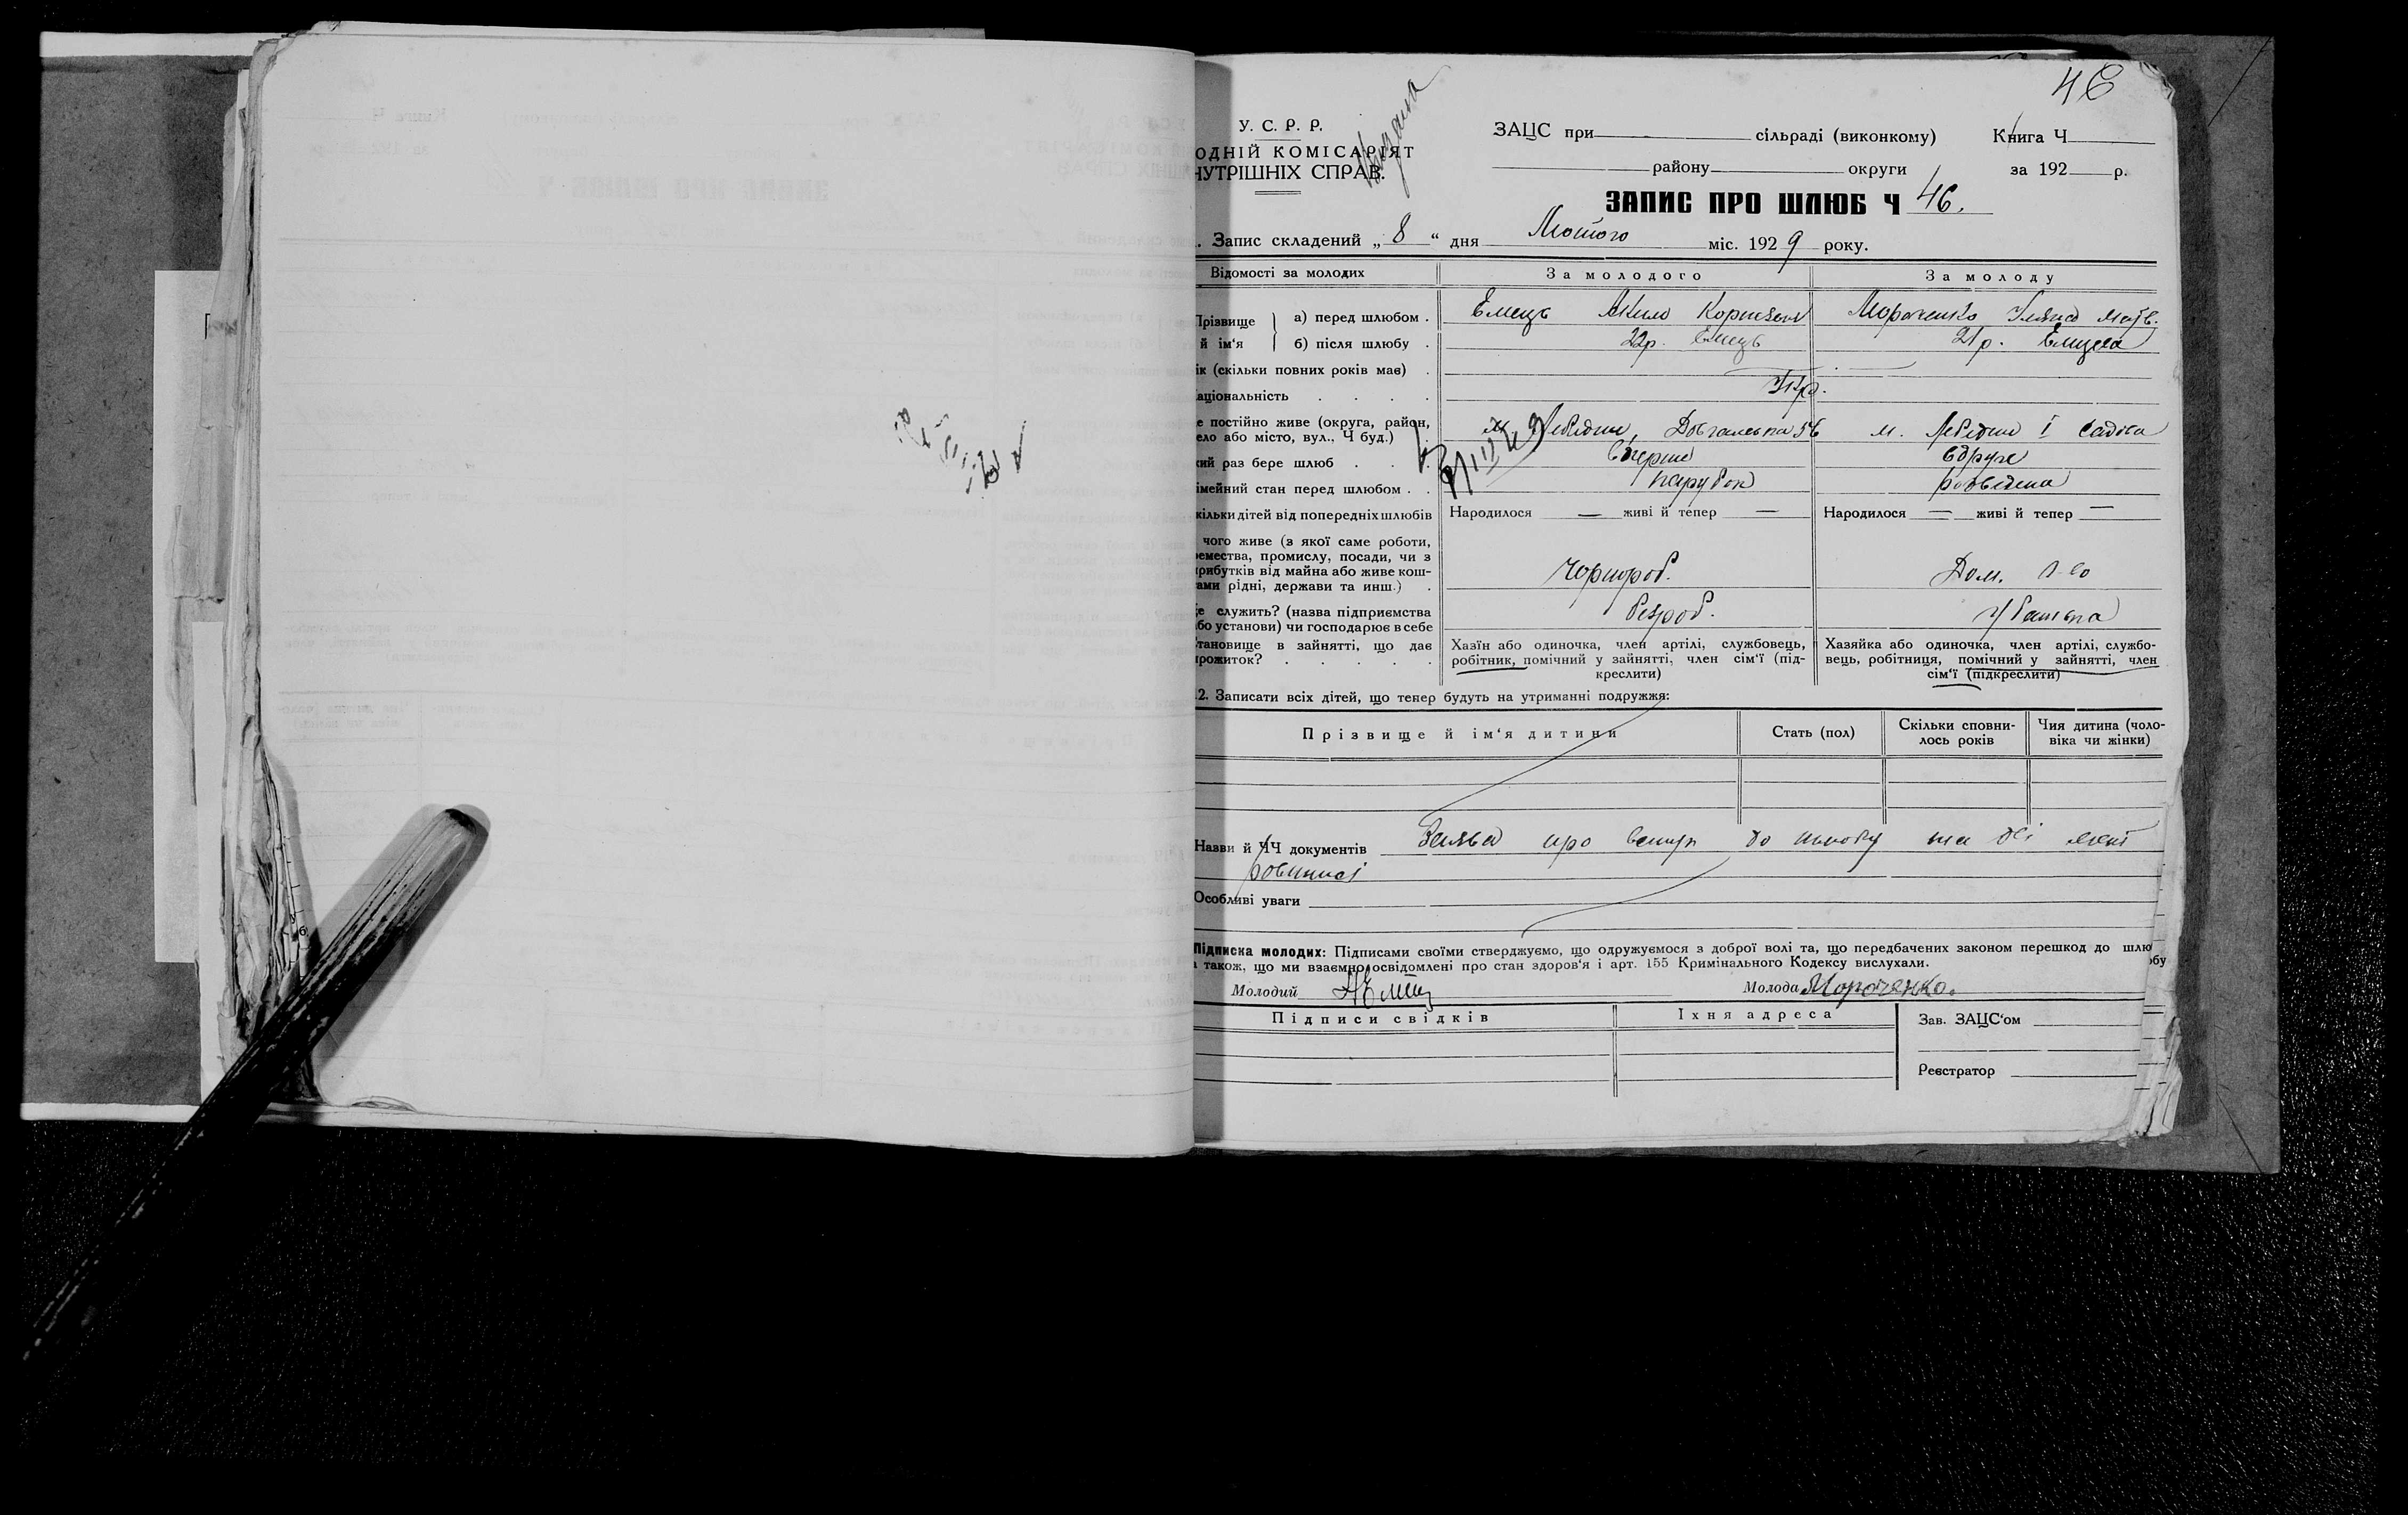 46
У. С. Р. Р.
ОДНІЙ КОМІСАРІЯТ
НУТРІШНІХ СПРАВ.
ЗАЦС при сільраді (виконкому) Книга Ч
району округи за 192 р.
ЗАПИС ПРО ШЛЮБ Ч 46.
. Запис складений „ 8 “ дня Лютого міс. 1929 року.
Відомості за молодих За молодого За молоду
Прізвище й ім‘я а) перед шлюбом . Ємець Корнієв Мороченко Уляна Матв.
б) після шлюбу . 22р. Ємець 21р. Ємцева
ік (скільки повних років має) .
аціональність . . . . Укр.
е постійно живе (округа, район,
ело або місто, вул., Ч буд.) м. Лебедин, 56 м. Лебедин І Садова
кий раз бере шлюб . . . Вперше вдруге
імейний стан перед шлюбом . . парубок розведена
кільки дітей від попередніх шлюбів Народилося — живі й тепер — Народилося — живі й тепер —
чого живе (з якої саме роботи,
емества, промислу, посади, чи з
рибутків від майна або живе кош-
ами рідні, держави та инш.) . Чорнороб. Дом.
е служить? (назва підприємства
бо установи) чи господарює в себе безроб. У батька
тановище в зайнятті, що дає
рожиток? . . . . .
Хазїн або одиночка, член артілі, службовець,
робітник, помічний у зайнятті, член сім‘ї (під-
креслити)
Хазяйка або одиночка, член артілі, службо-
вець, робітниця, помічний у зайнятті, член
сім‘ї (підкреслити)
2. Записати всіх дітей, що тепер будуть на утриманні подружжя:
Прізвище й ім‘я дитини Стать (пол) Скільки сповни-
лось років Чия дитина (чоло-
віка чи жінки)
Назви й ЧЧ документів Заява про вступ до шлюбу та дві
Особливі уваги
Підписка молодих: Підписами своїми стверджуємо, що одружуємося з доброї волі та, що передбачених законом перешкод до шлю
бу
а також, що ми взаємно освідомлені про стан здоров‘я і арт. 155 Кримінального Кодексу вислухали.
Молодий АЄмец Молода Мороченко.
Підписи свідків Їхня адреса Зав. ЗАЦС‘ом
Реєстратор